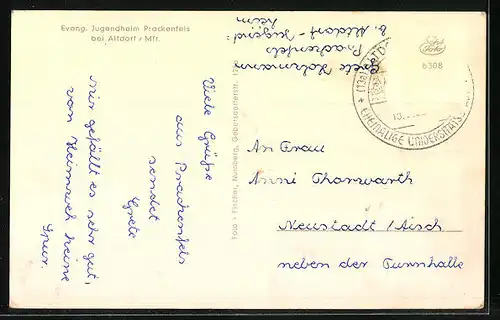 Evang. Jugendheim Prackenfels
bei Altdorf / Mfr.
Viele Grüße
aus Prackenfels
sendet
Grete
Mir gefällt es sehr gut,
von Heimweh keine
Spur.
Foto - Fischer, Nürnberg,
Grete
b. Altdorf - Jugend-
heim
Prackenfels
(13a) ALTD
* EHEMALIGE UNIVERSITÄTS
6308
An Frau
Anni Thorwarth
Neustadt / Aisch
neben der Turnhalle